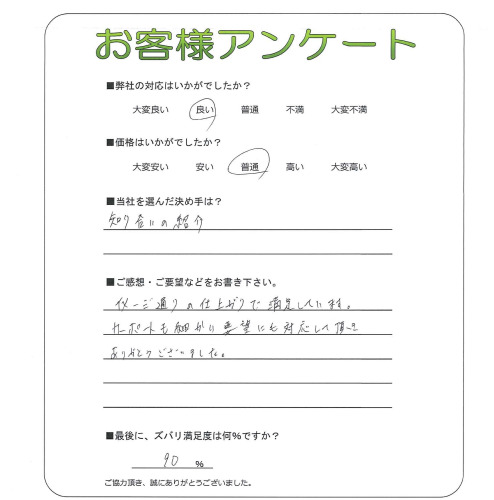 お客様アンケート
■弊社の対応はいかがでしたか？
大変良い 良い 普通 不満 大変不満
■価格はいかがでしたか？
大変安い 安い 普通 高い 大変高い
■当社を選んだ決め手は？
知り合いの紹介
■ご感想・ご要望などをお書き下さい。
イメージ通りの仕上がりで満足しています。
サポートも細かい要望にも対応して頂き
ありがとうございました。
■最後に、ズバリ満足度は何％ですか？
90 ％
ご協力頂き、誠にありがとうございました。